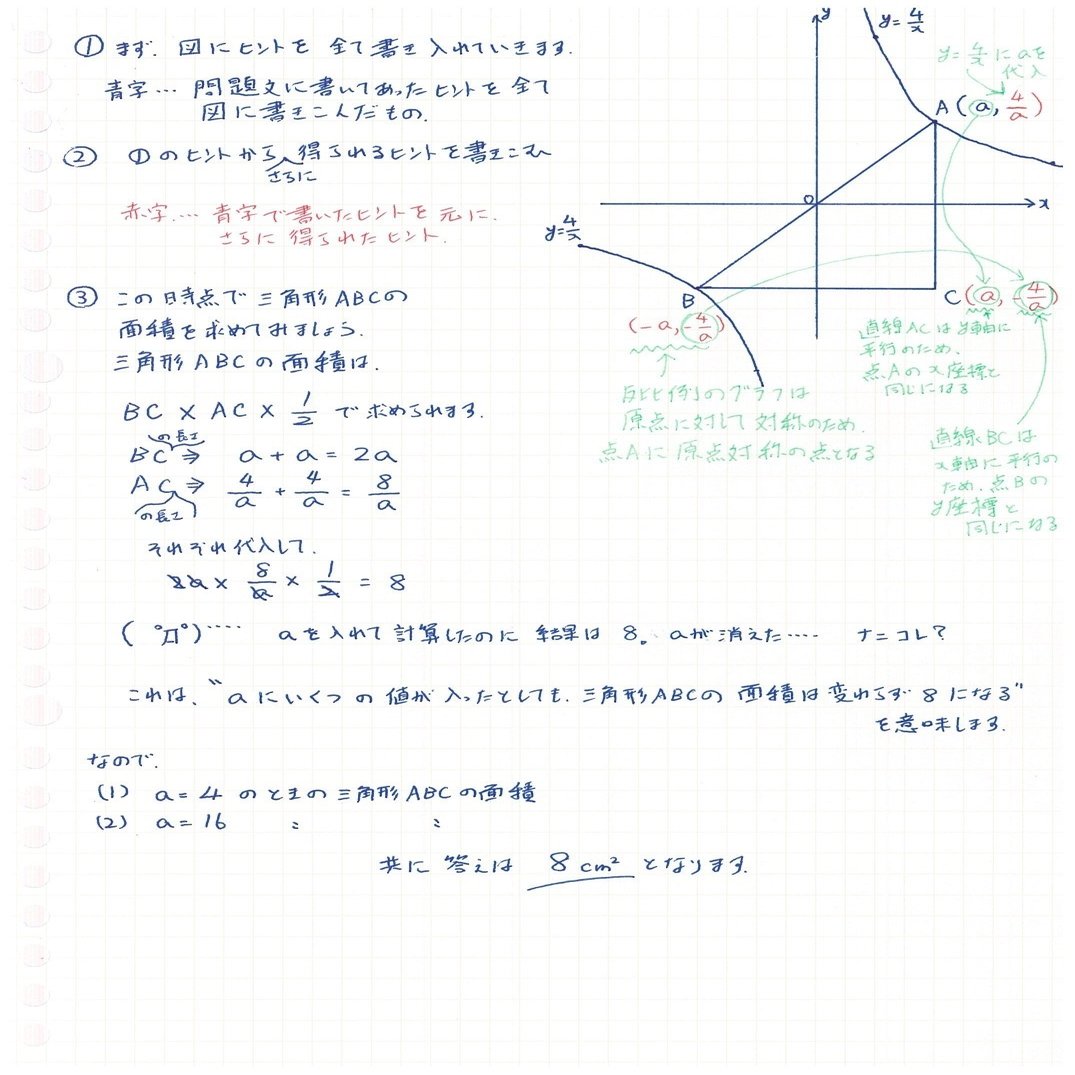 ① まず、図にヒントを 全て書き入れていきます。
青字… 問題文に書いてあったヒントを全て
図に書きこんだもの。
② ①のヒントから 得られるヒントを書きこむ
さらに
赤字… 青字で書いたヒントを元に、
さらに得られたヒント。
③ この時点で三角形ABCの
面積を求めてみましょう。
三角形ABCの面積は、
BC × AC × 1/2 で求められます。
の長さ
BC ⇒ a + a = 2a
AC ⇒ 4/a + 4/a = 8/a
の長さ
それぞれ代入して、
2a × 8/a × 1/2 = 8
( ゚Д゚)‥‥ aを入れて計算したのに 結果は 8。 aが消えた‥‥ ナニコレ?
これは、〝aにいくつの値が入ったとしても、三角形ABCの面積は変わらず 8 になる〞
を意味します。
なので、
(1) a=4 のときの三角形ABCの面積
(2) a=16 〃 〃
共に 答えは 8cm² となります。
y
y=4/x
y=4/xにaを
代入
A(a, 4/a)
O
x
y=4/x
B
(-a, -4/a)
C(a, -4/a)
反比例のグラフは
原点に対して対称のため、
点Aに原点対称の点となる
直線ACはy軸に
平行のため、
点Aのx座標と
同じになる
直線BCは
x軸に平行の
ため、点Bの
y座標と
同じになる